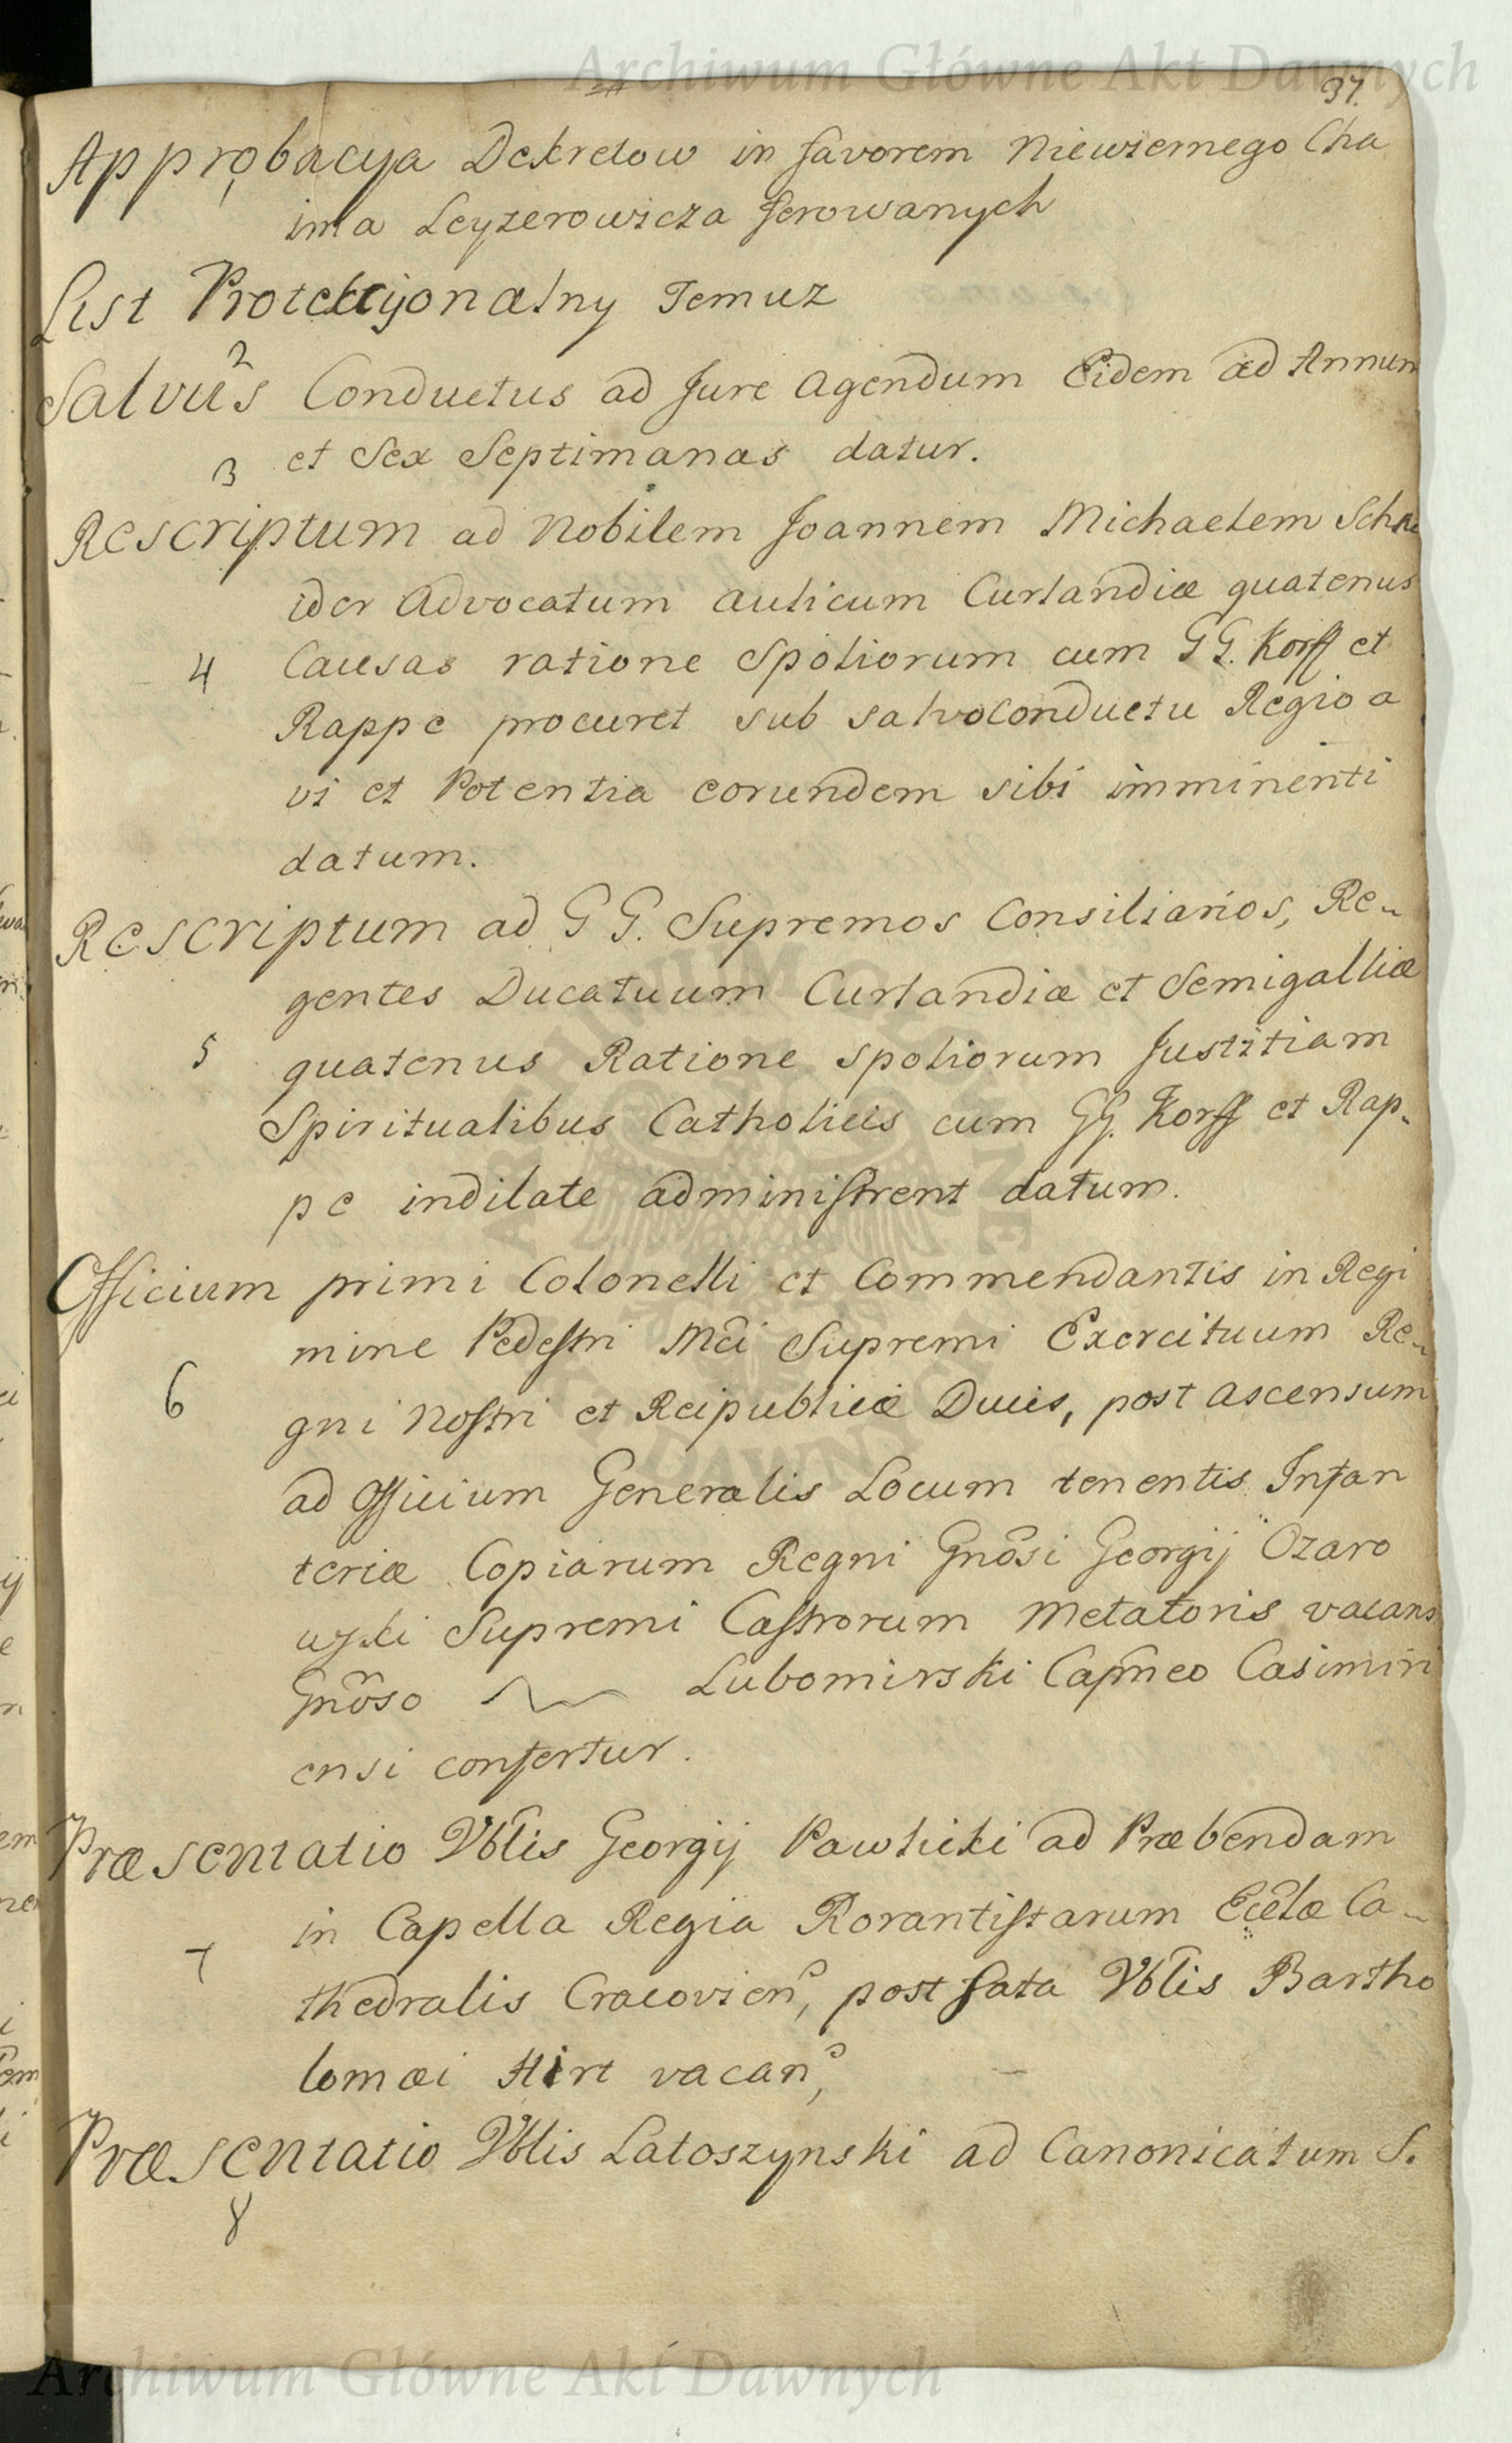 Archiwum Główne Akt Dawnych
37.
Approbacya Dekretow in favorem Niewiernego Cha
ima Leyzerowicza ferowanych
List Protekcyonalny Temuz
2
Salvus Conductus ad Jure agendum Eidem ad Annum
et Sex Septimanas datur.
3
Rescriptum ad Nobilem Joannem Michaelem Schne
ider Advocatum aulicum Curlandiæ quatenus
4 Causas ratione Spoliorum cum GG. Korff et
Rappe procuret sub salvoconductu Regio a
vi et Potentia eorundem sibi imminenti
datum.
Rescriptum ad GG. Supremos Consiliarios, Re-
gentes Ducatuum Curlandiæ et Semigalliæ
5 quatenus Ratione spoliorum Justitiam
Spiritualibus Catholicis cum GG. Korff et Rap-
pe indilate administrent datum.
Officium primi Colonelli et Commendantis in Regi
mine Pedestri Mci Supremi Exercituum Re-
6 gni Nostri et Reipublicæ Ducis, post ascensum
ad Officium Generalis Locum tenentis Infan
teriæ Copiarum Regni Gnosi Georgij Ozaro
wski Supremi Castrorum Metatoris vacans
Gnoso Lubomirski Capneo Casimiri
ensi confertur.
Præsentatio Vblis Georgij Pawlicki ad Præbendam
in Capella Regia Rorantistarum Eccłæ Ca-
7 thedralis Cracovien, post fata Vblis Bartho
lomæi Hirt vacan,
Præsentatio Vblis Latoszynski ad Canonicatum S.
8
ARCHIWUM GŁÓWNE AKT DAWNYCH
Archiwum Główne Akt Dawnych